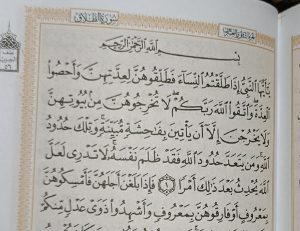 سُورَةُ الطَّلَاقِ
بِسْمِ اللَّهِ الرَّحْمَٰنِ الرَّحِيمِ
يَٰٓأَيُّهَا النَّبِىُّ إِذَا طَلَّقْتُمُ النِّسَآءَ فَطَلِّقُوهُنَّ لِعِدَّتِهِنَّ وَأَحْصُوا
الْعِدَّةَ وَاتَّقُوا اللَّهَ رَبَّكُمْ لَا تُخْرِجُوهُنَّ مِنۢ بُيُوتِهِنَّ
وَلَا يَخْرُجْنَ إِلَّآ أَن يَأْتِينَ بِفَٰحِشَةٍ مُّبَيِّنَةٍ وَتِلْكَ حُدُودُ
اللَّهِ وَمَن يَتَعَدَّ حُدُودَ اللَّهِ فَقَدْ ظَلَمَ نَفْسَهُۥ لَا تَدْرِى لَعَلَّ
اللَّهَ يُحْدِثُ بَعْدَ ذَٰلِكَ أَمْرًا ۝١ فَإِذَا بَلَغْنَ أَجَلَهُنَّ فَأَمْسِكُوهُنَّ
بِمَعْرُوفٍ أَوْ فَارِقُوهُنَّ بِمَعْرُوفٍ وَأَشْهِدُوا ذَوَىْ عَدْلٍ مِّنكُمْ